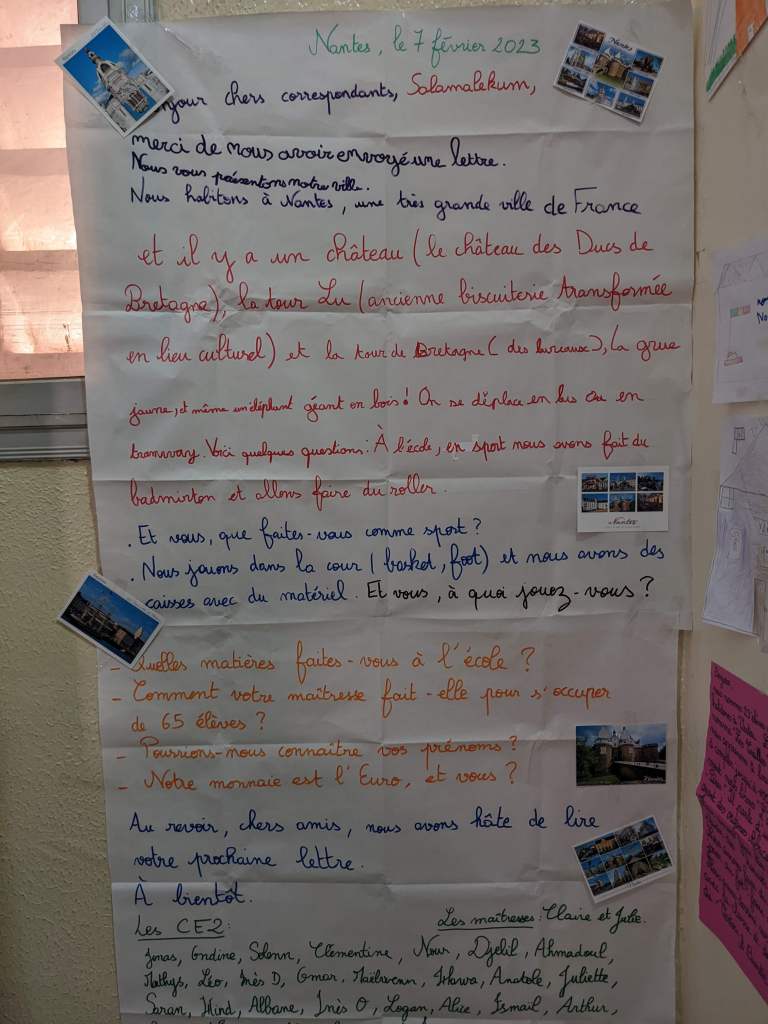 Nantes, le 7 février 2023
jour chers correspondants, Salamalekum,
merci de nous avoir envoyé une lettre.
Nous vous présentons notre ville.
Nous habitons à Nantes, une très grande ville de France
et il y a un château (le château des Ducs de
Bretagne), la tour Lu (ancienne biscuiterie transformée
en lieu culturel) et la tour de Bretagne (des bureaux), la grue
jaune, et même un éléphant géant en bois! On se déplace en bus ou en
tramway. Voici quelques questions: À l'école, en sport nous avons fait du
badminton et allons faire du roller.
. Et vous, que faites-vous comme sport?
. Nous jouons dans la cour (basket, foot) et nous avons des
caisses avec du matériel. Et vous, à quoi jouez-vous?
- Quelles matières faites-vous à l'école?
- Comment votre maîtresse fait-elle pour s'occuper
de 65 élèves?
- Pourrions-nous connaître vos prénoms?
- Notre monnaie est l'Euro, et vous?
Au revoir, chers amis, nous avons hâte de lire
votre prochaine lettre.
À bientôt.
Les CE2: Les maîtresses: Claire et Julie.
Jonas, Ondine, Solenn, Clémentine, Nour, Djelil, Ahmadoul,
Mathys, Léo, Inès D, Omar, Maëlwenn, Anatole, Juliette,
Saran, Hind, Albane, Inès O, Logan, Alice, Ismail, Arthur,
Nantes
Nantes